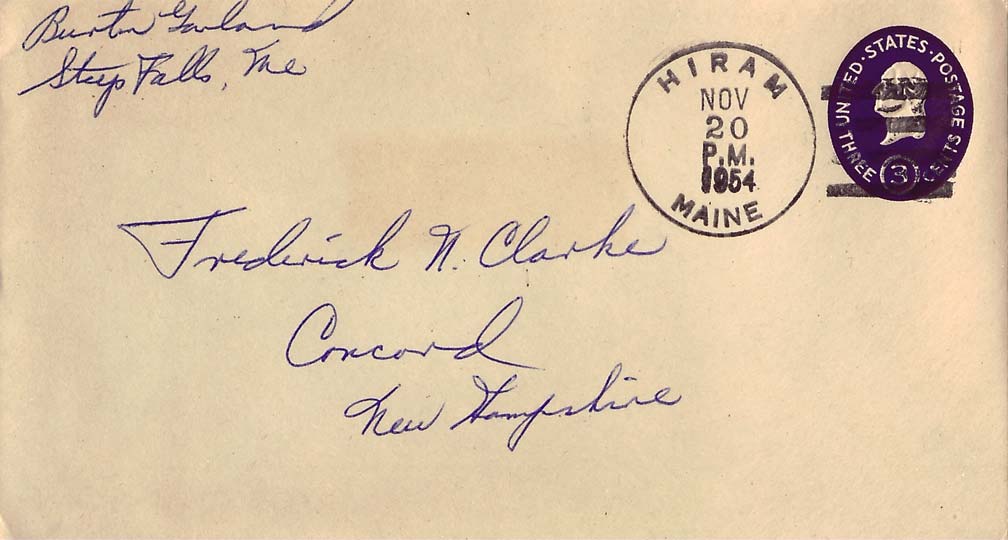 Burton Garland
Steep Falls, Me
HIRAM
NOV
20
P.M.
1954
MAINE
UNITED·STATES·POSTAGE
THREE 3 CENTS
Frederick N. Clarke
Concord
New Hampshire